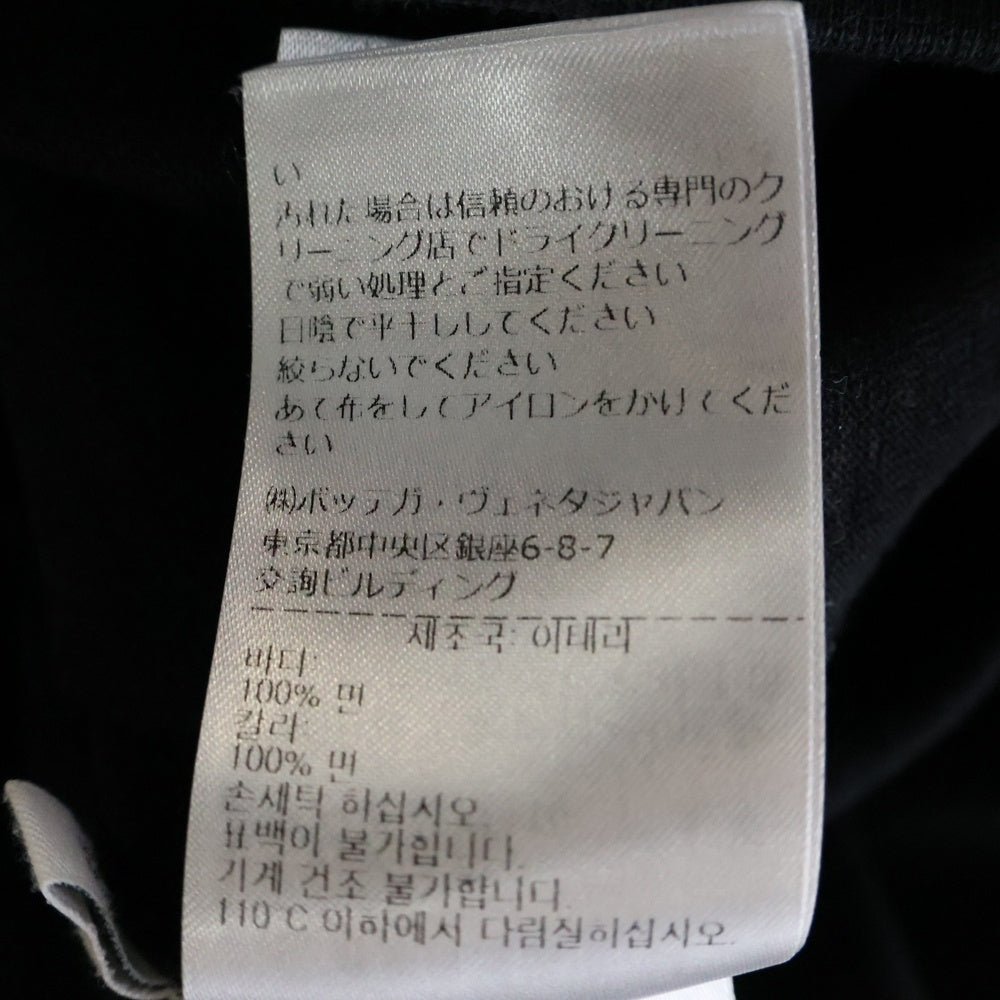 い
汚れた場合は信頼のおける専門のク
リーニング店でドライクリーニング
で弱い処理とご指定ください
日陰で平干ししてください
絞らないでください
あて布をしてアイロンをかけてくだ
さい
㈱ボッテガ・ヴェネタジャパン
東京都中央区銀座6-8-7
交詢ビルディング
제조국: 이태리
바디:
100% 면
칼라:
100% 면
손세탁 하십시오
표백이 불가합니다.
기계 건조 불가합니다.
110 C 이하에서 다림질하십시오.